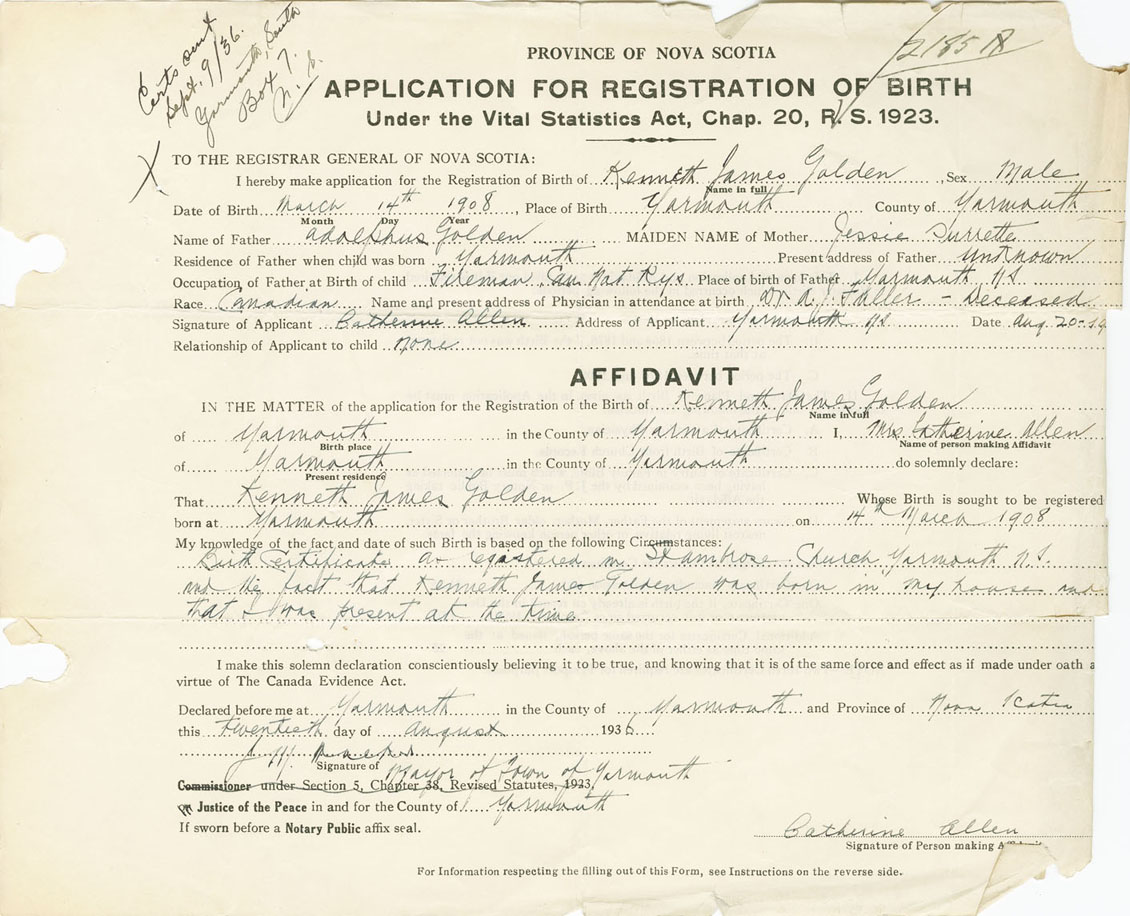 Certs out
Sept. 9/36.
Yarmouth, South
Box 7.
N. S.
2185 A
PROVINCE OF NOVA SCOTIA
APPLICATION FOR REGISTRATION OF BIRTH
Under the Vital Statistics Act, Chap. 20, R. S. 1923.
X
TO THE REGISTRAR GENERAL OF NOVA SCOTIA:
I hereby make application for the Registration of Birth of Kenneth James Golden, Sex Male
Name in full
Date of Birth March 14th 1908, Place of Birth Yarmouth County of Yarmouth
Month Day Year
Name of Father Adolphus Golden MAIDEN NAME of Mother Jessie Surrette
Residence of Father when child was born Yarmouth Present address of Father Unknown
Occupation of Father at Birth of child Fireman Can Nat Rys Place of birth of Father Yarmouth NS
Race Canadian Name and present address of Physician in attendance at birth Dr A. J. Fuller - Deceased
Signature of Applicant Catherine Allen Address of Applicant Yarmouth NS Date Aug. 20-19
Relationship of Applicant to child None
AFFIDAVIT
IN THE MATTER of the application for the Registration of the Birth of Kenneth James Golden
Name in full
of Yarmouth in the County of Yarmouth I, Mrs. Catherine Allen
Birth place Name of person making Affidavit
of Yarmouth in the County of Yarmouth do solemnly declare:
Present residence
That Kenneth James Golden Whose Birth is sought to be registered
born at Yarmouth on 14th March 1908
My knowledge of the fact and date of such Birth is based on the following Circumstances:
Birth Certificate as registered in St Ambrose Church Yarmouth N.S.
and the fact that Kenneth James Golden was born in my house and
that I was present at the time
I make this solemn declaration conscientiously believing it to be true, and knowing that it is of the same force and effect as if made under oath a
virtue of The Canada Evidence Act.
Declared before me at Yarmouth in the County of Yarmouth and Province of Nova Scotia
this Twentieth day of August 1936
Signature of Mayor of Town of Yarmouth
Commissioner under Section 5, Chapter 38, Revised Statutes, 1923,
or Justice of the Peace in and for the County of Yarmouth
If sworn before a Notary Public affix seal.
Catherine Allen
Signature of Person making A
For Information respecting the filling out of this Form, see Instructions on the reverse side.